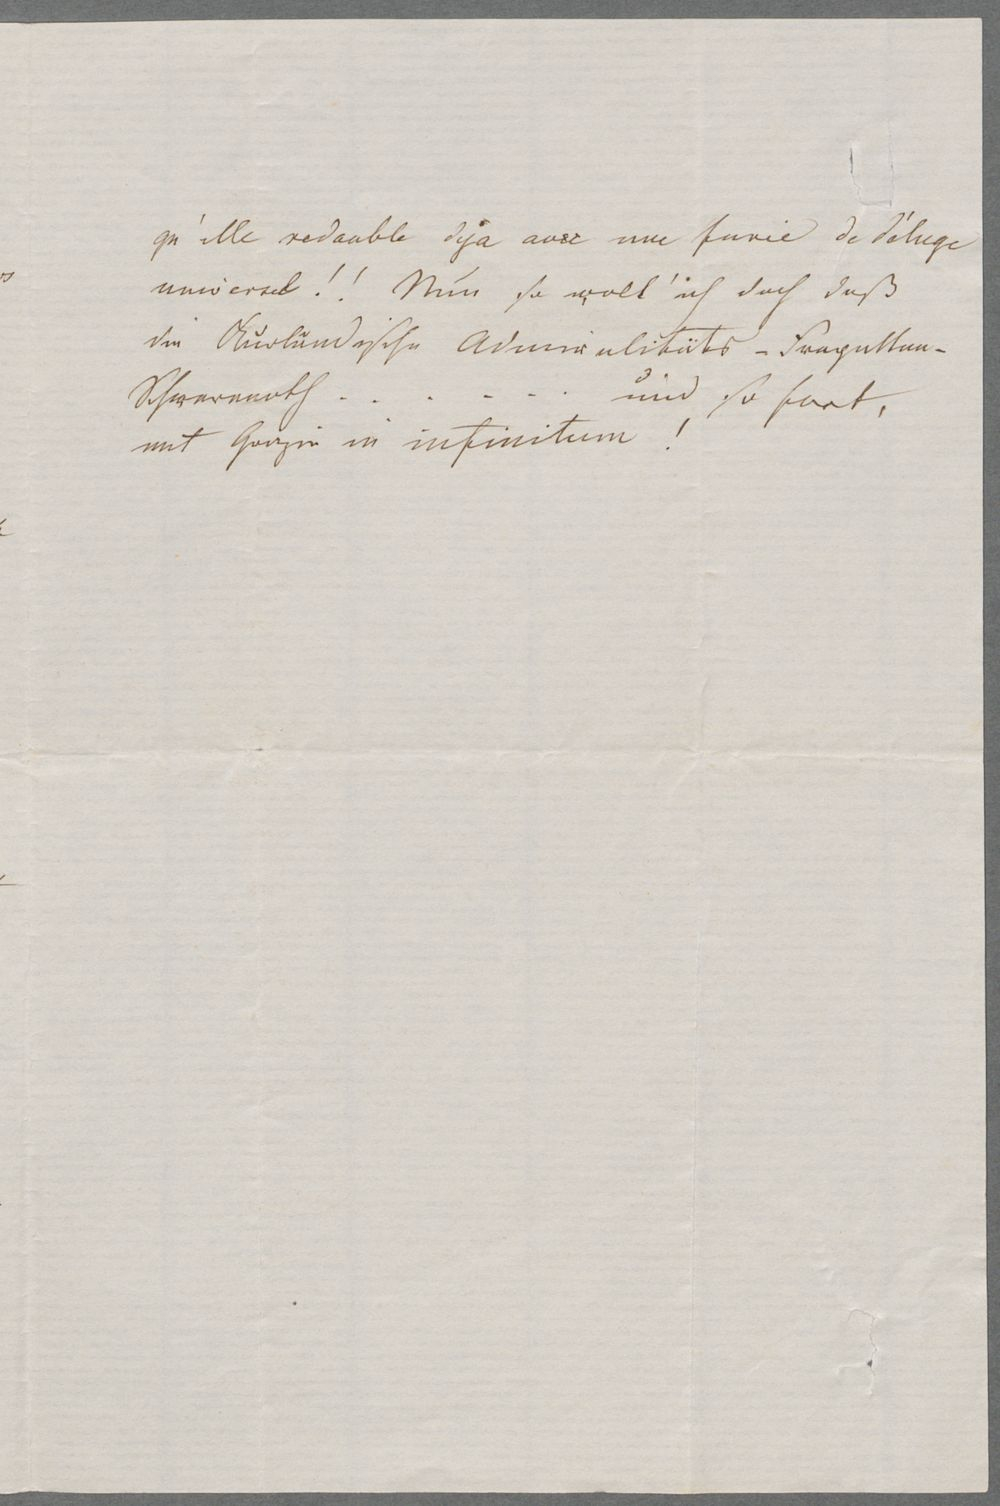 qu'elle redouble deja avec une furie de déluge
universel!! Nun so wollt' ich doch daß
die Kurländische Admiralitäts-Fregatten-
Schwerenoth . . . . . . . und so fort,
mit Grazie in infinitum!